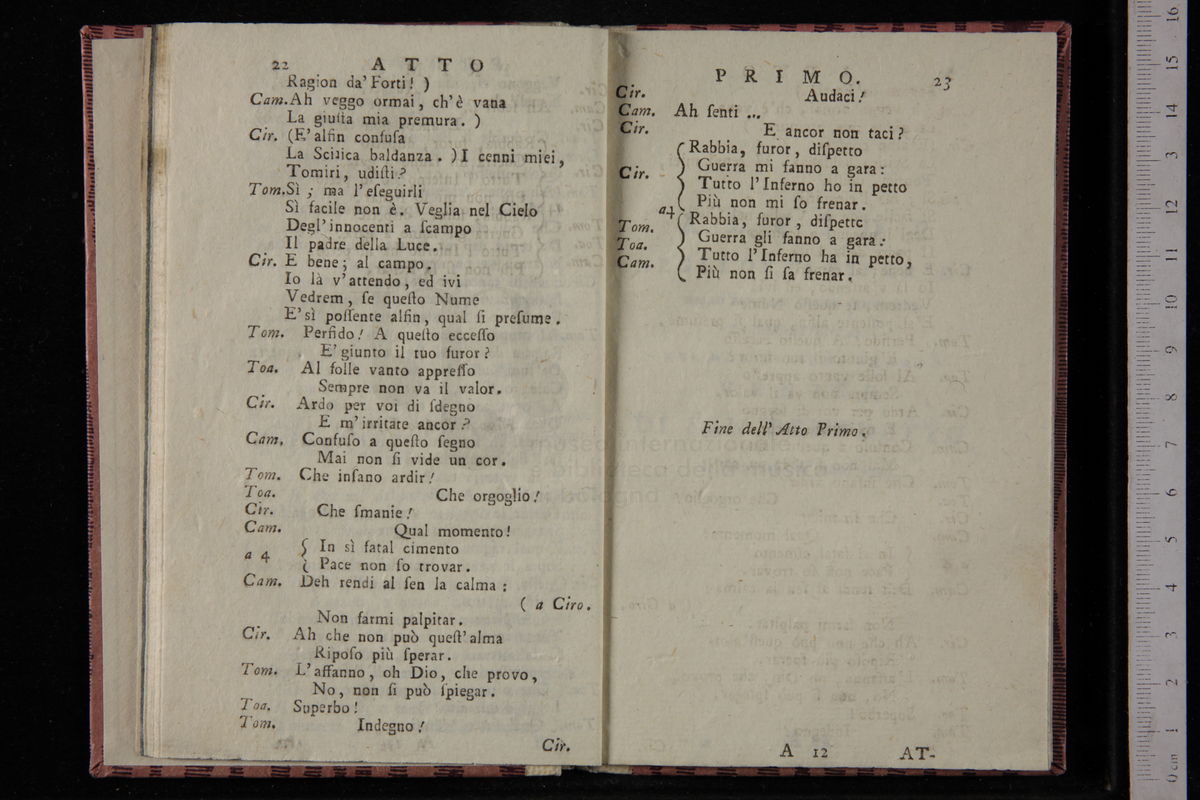 22 ATTO
Ragion da' Forti! )
Cam. Ah veggo ormai, ch'è vana
La giuſta mia premura. )
Cir. (E' alfin confuſa
La Scitica baldanza. ) I cenni miei,
Tomiri, udiſti?
Tom. Sì; ma l'eſeguirli
Sì facile non è. Veglia nel Cielo
Degl'innocenti a ſcampo
Il padre della Luce.
Cir. E bene; al campo.
Io là v'attendo, ed ivi
Vedrem, ſe queſto Nume
E' sì poſſente alfin, qual ſi preſume.
Tom. Perfido! A queſto ecceſſo
E' giunto il tuo furor?
Toa. Al folle vanto appreſſo
Sempre non va il valor.
Cir. Ardo per voi di ſdegno
E m'irritate ancor?
Cam. Confuſo a queſto ſegno
Mai non ſi vide un cor.
Tom. Che inſano ardir!
Toa. Che orgoglio!
Cir. Che ſmanie!
Cam. Qual momento!
a 4 { In sì fatal cimento
Pace non ſo trovar.
Cam. Deh rendi al ſen la calma:
( a Ciro.
Non farmi palpitar.
Cir. Ah che non può queſt'alma
Ripoſo più ſperar.
Tom. L'affanno, oh Dio, che provo,
No, non ſi può ſpiegar.
Toa. Superbo!
Tom. Indegno!
Cir.
PRIMO. 23
Cir. Audaci!
Cam. Ah ſenti ...
Cir. E ancor non taci?
Cir. { Rabbia, furor, diſpetto
Guerra mi fanno a gara:
Tutto l'Inferno ho in petto
Più non mi ſo frenar.
a 4
Tom. { Rabbia, furor, diſpetto
Toa. Guerra gli fanno a gara:
Cam. Tutto l'Inferno ha in petto,
Più non ſi ſa frenar.
Fine dell' Atto Primo.
museo internazionale
e biblioteca della musica
bologna
A 12 AT-
0 cm 1 2 3 4 5 6 7 8 9 10 11 12 13 14 15 16